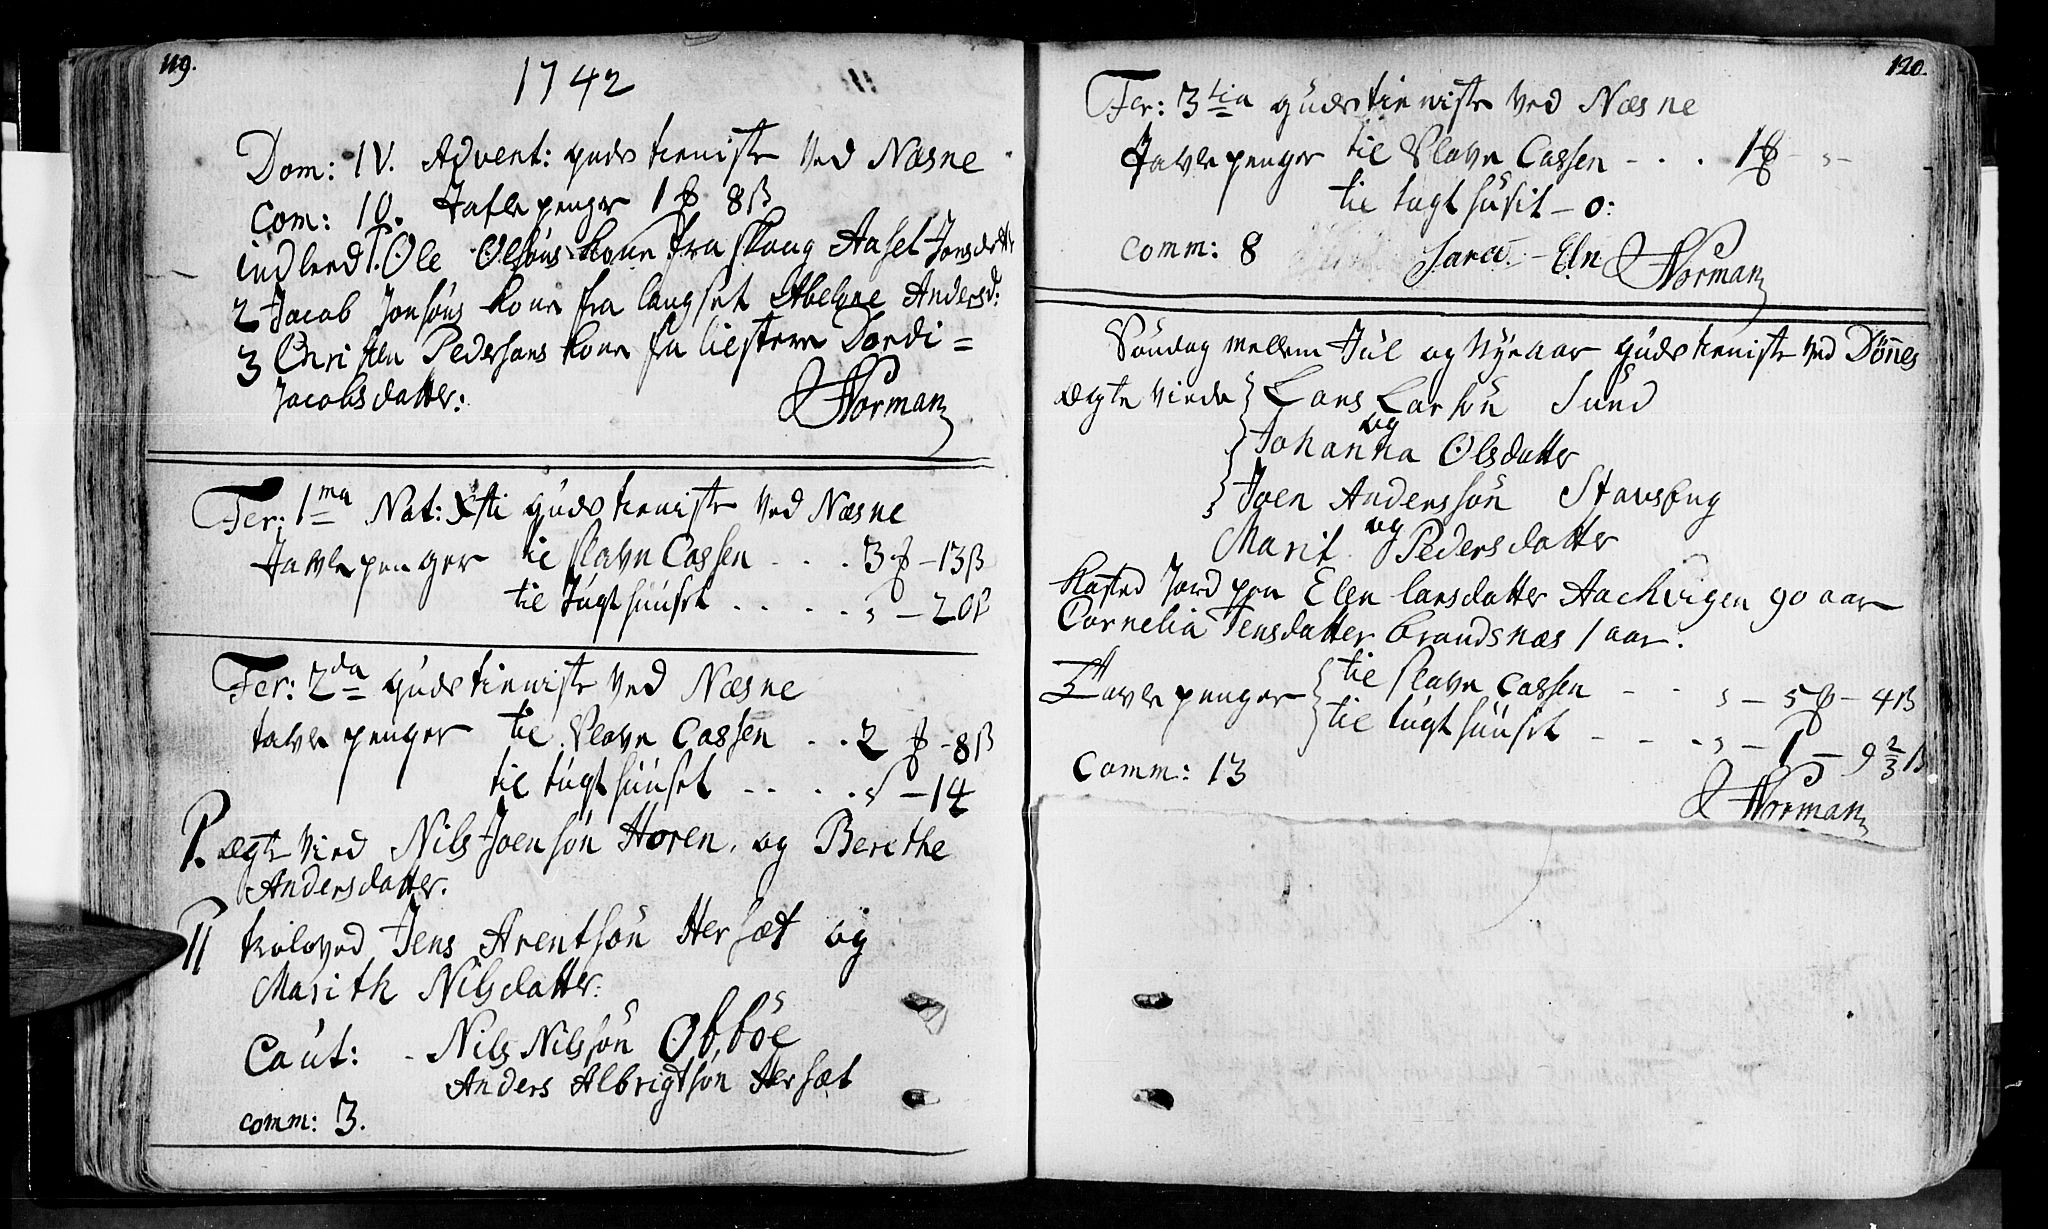 119.
1742
Dom: IV. Advent: guds tieniste ved Næsne
Com: 10. Tafle penger 1 ℔ 8 ß
indled 1. Ole Olsøns kone fra skaug Aasel Jonsdatter
2 Jacob Jonsøns kone fra langset Abelone Andersd:
3 Christen Pedersøns kone fra liesteren Dordi=
Jacobsdatter:
Norman
Fer: 1ma Nat: Xsti guds tieniste ved Næsne
Tavle penger til slave Cassen . . . 3 ℔ – 13 ß
til tugthuuset . . . . . „ – 20 ß
Fer: 2da guds tieniste ved Næsne
tavle penger til Slave Cassen . . 2 ℔ – 8 ß
til tugthuuset – . . . . „ – 14
P. ægte vied Nils Joensøn Horen, og Berethe
Andersdatter.
П troloved Jens Arentsøn Hersæt og
Marith Nilsdatter:
Caut: – Nils Nilssøn Obbøe
Anders Albrigtsøn Hersæt
comm: 3.
120.
Fer: 3tia guds tieniste ved Næsne
Tavle penger til Slave Cassen – . . 1 ℔ – „ –
til tugthuset – 0:
comm: 8 Norman
Søndag mellem Jul og Nyeaar guds tieniste ved Dönnes
ægte viede Lars Larsøn Sund
og
Johanna Olsdatter
Joen Anderssøn Stavseng
og
Marit Pedersdatter
Kasted Jord paa Elen larsdatter Aachvigen 90 aar
Cornelia Jensdatter brandsnæs 1 aar.
Tavle penger til slave cassen – – „ – 5 ℔ – 4 ß
til tugthuuset – – – „ – 1 – 9 2/3 ß
Comm: 13
Norman